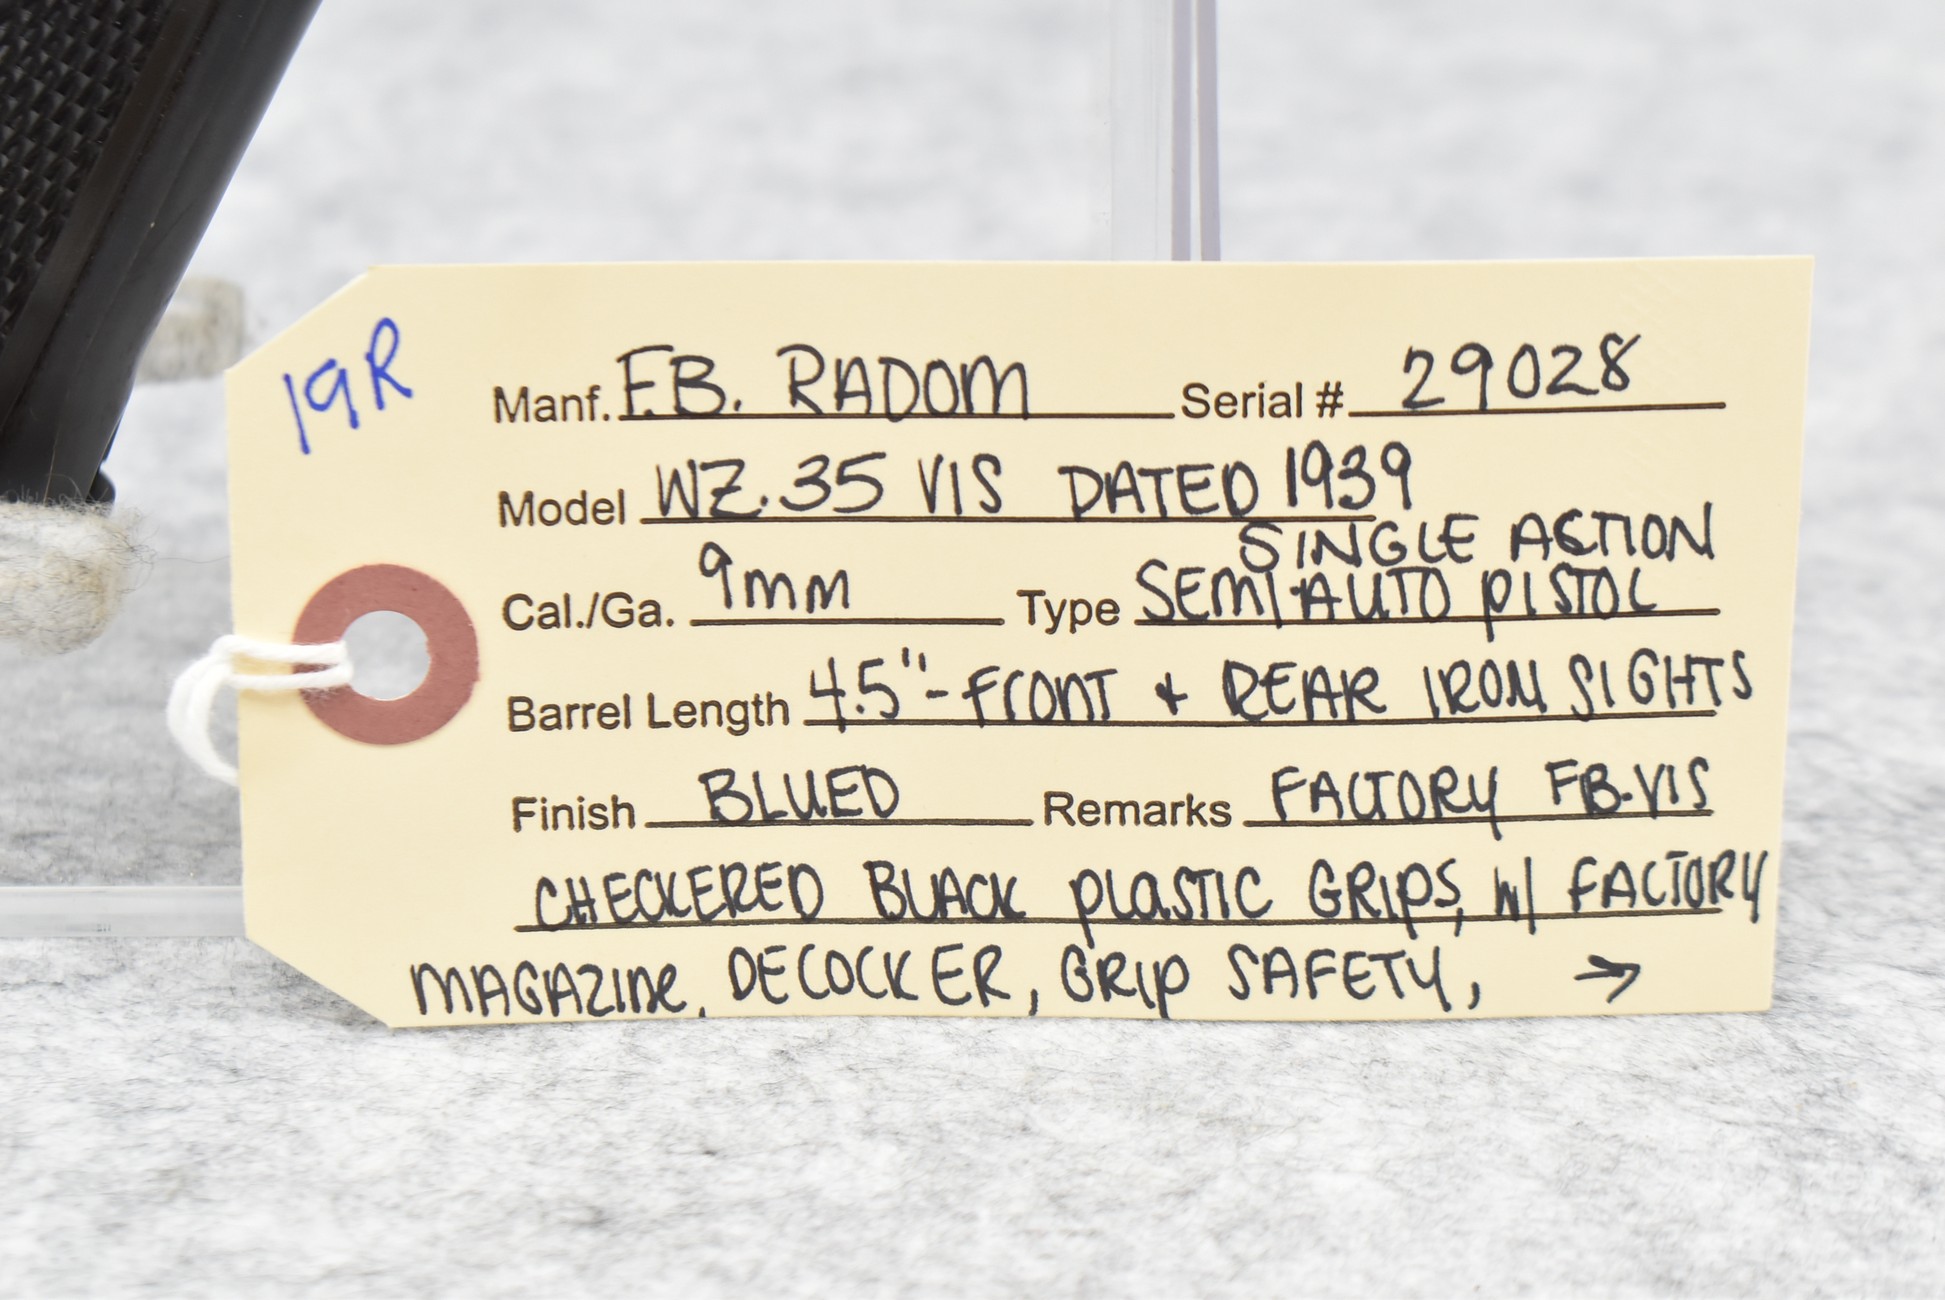 19R
Manf. F.B. RADOM Serial # 29028
Model WZ.35 VIS DATED 1939
SINGLE ACTION
Cal./Ga. 9mm Type SEMI-AUTO PISTOL
Barrel Length 4.5"- FRONT + REAR IRON SIGHTS
Finish BLUED Remarks FACTORY FB-VIS
CHECKERED BLACK PLASTIC GRIPS, W/ FACTORY
MAGAZINE, DECOCKER, GRIP SAFETY, →